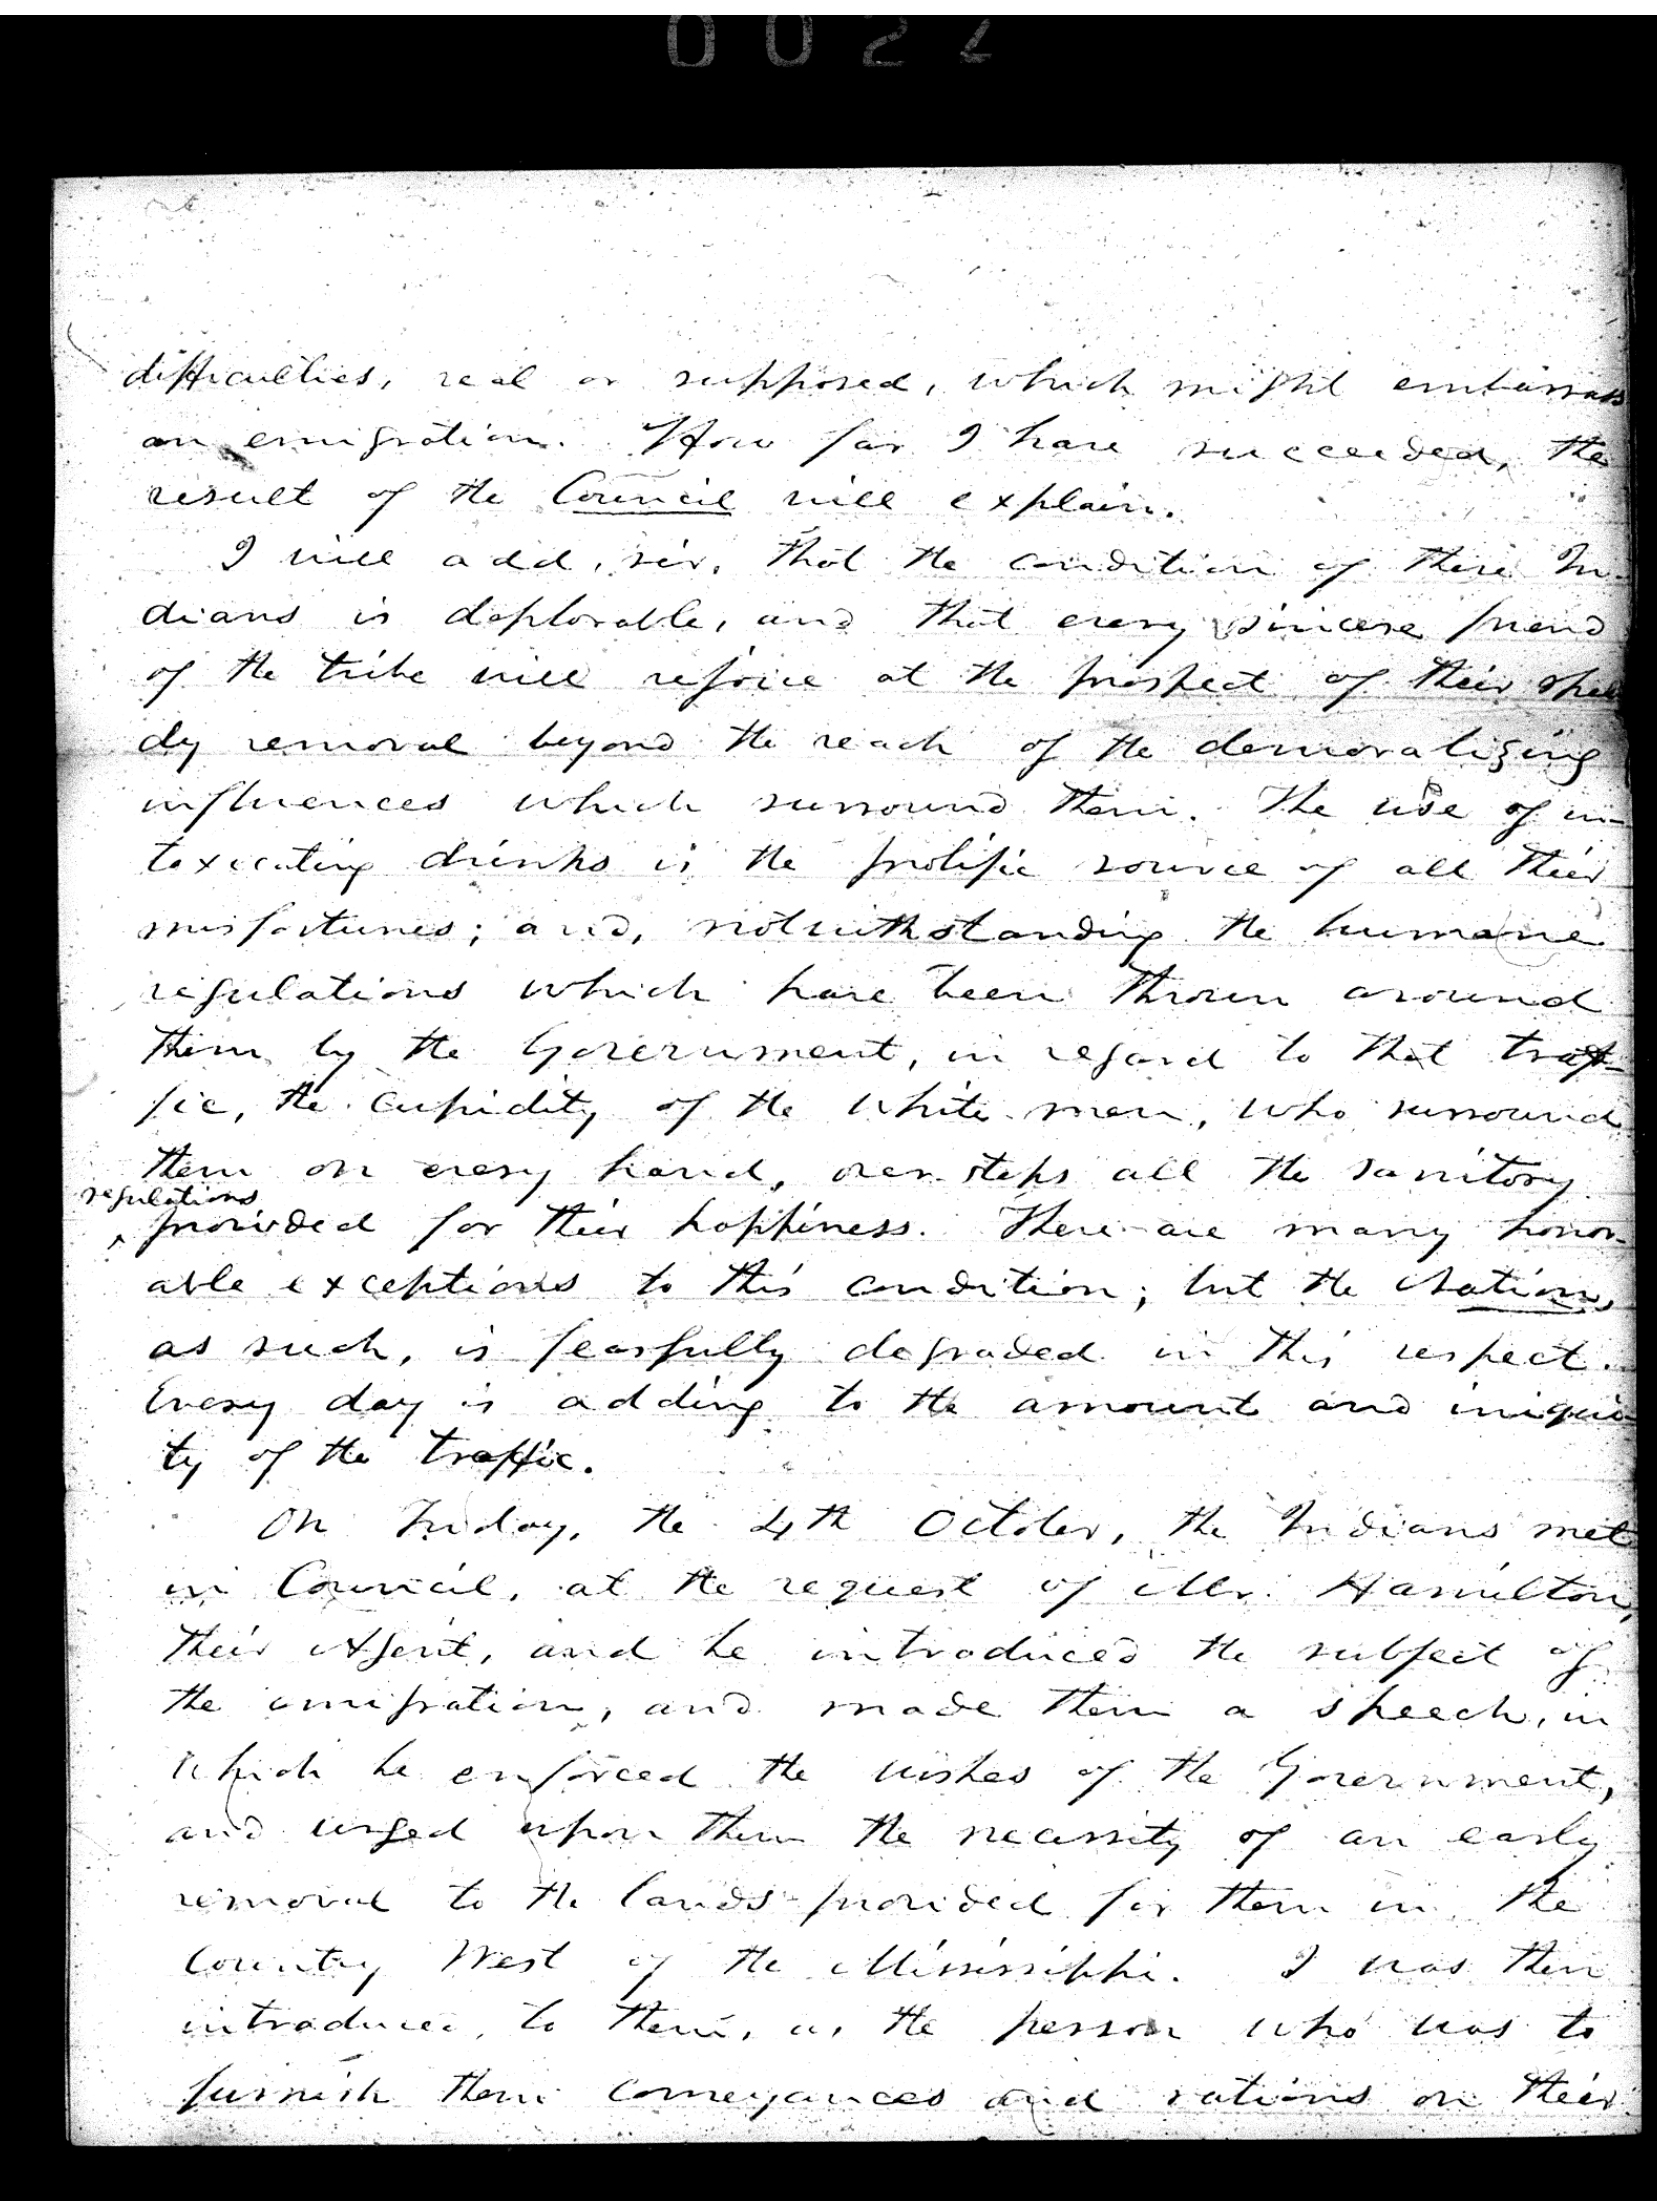 0027
difficulties, real or supposed, which might embarrass
an emigration. How far I have succeeded, the
result of the Council will explain.
I will add, sir, that the condition of these In-
dians is deplorable, and that every sincere friend
of the tribe will rejoice at the prospect of their spee
dy removal beyond the reach of the demoralizing
influences which surround them. The use of in-
toxicating drinks is the prolific source of all their
misfortunes; and, notwithstanding the humane
regulations which have been thrown around
them by the Government, in regard to that traf-
fic, the cupidity of the white men, who surround
them on every hand, oversteps all the sanitory
regulations
^ provided for their happiness. There are many honor-
able exceptions to this condition; but the Nation,
as such, is fearfully degraded in this respect.
Every day is adding to the amount and iniqui-
ty of the traffic.
On Friday, the 4th October, the Indians met
in Council, at the request of Mr. Hamilton,
their Agent, and he introduced the subject of
the emigration, and made them a speech, in
which he enforced the wishes of the Government,
and urged upon them the necessity of an early
removal to the lands provided for them in the
Country West of the Mississippi. I was then
introduced, to them, as the person who was to
furnish them conveyances and rations on their